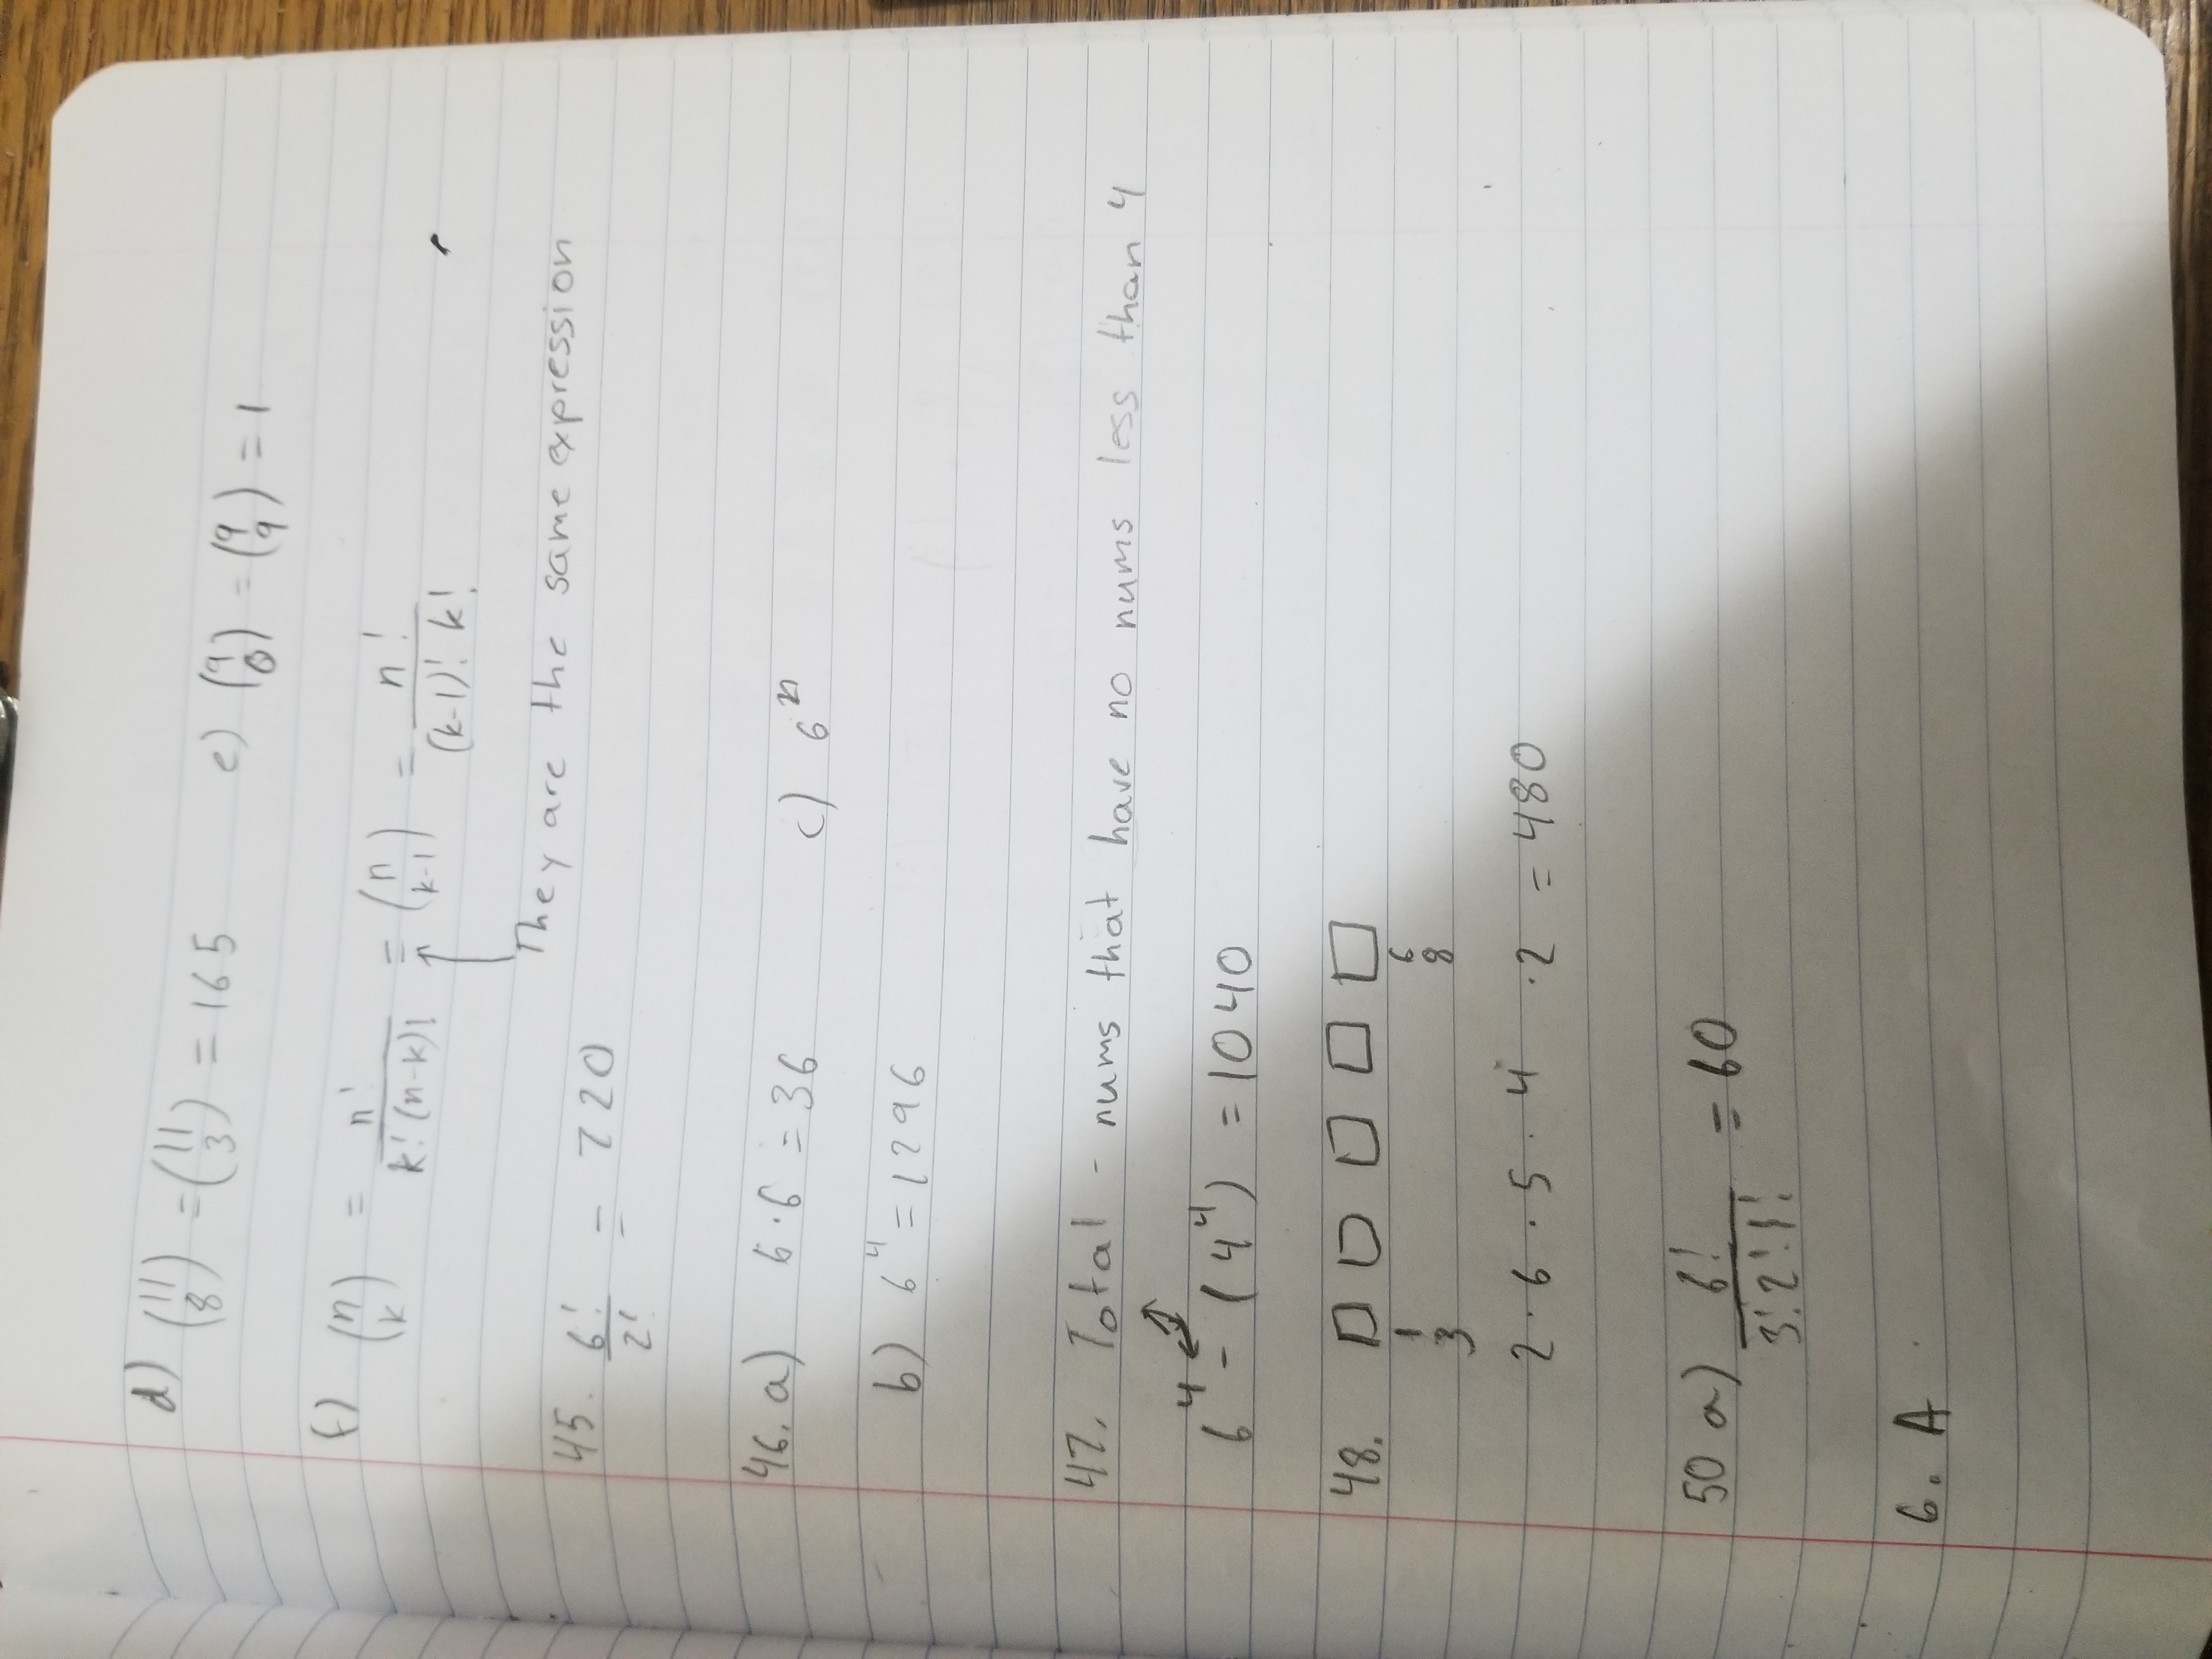 d) (11 8) = (11 3) = 165 e) (9 0) = (9 9) = 1
f) (n k) = n! / k!(n-k)! = (n k-1) = n! / (k-1)! k!
They are the same expression
45. 6! / 2! = 720
46. a) 6·6 = 36 c) 6^n
b) 6^4 = 1296
47. Total - nums that have no nums less than 4
6^4 - (4^4) = 1040
48. □ □ □ □ □
1 6
3 8
2 · 6 · 5 · 4 · 2 = 480
50 a) 6! / 3!2!1! = 60
6. A